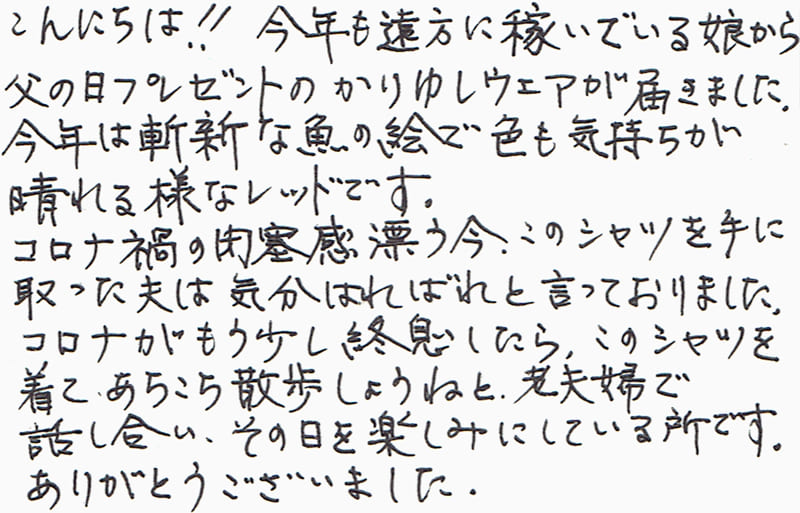 こんにちは!! 今年も遠方に稼いでいる娘から
父の日プレゼントのかりゆしウェアが届きました。
今年は斬新な魚の絵で色も気持ちが
晴れる様なレッドです。
コロナ禍の閉塞感漂う今、このシャツを手に
取った夫は気分はればれと言っておりました。
コロナがもう少し終息したら、このシャツを
着て、あちこち散歩しようねと、老夫婦で
話し合い、その日を楽しみにしている所です。
ありがとうございました。